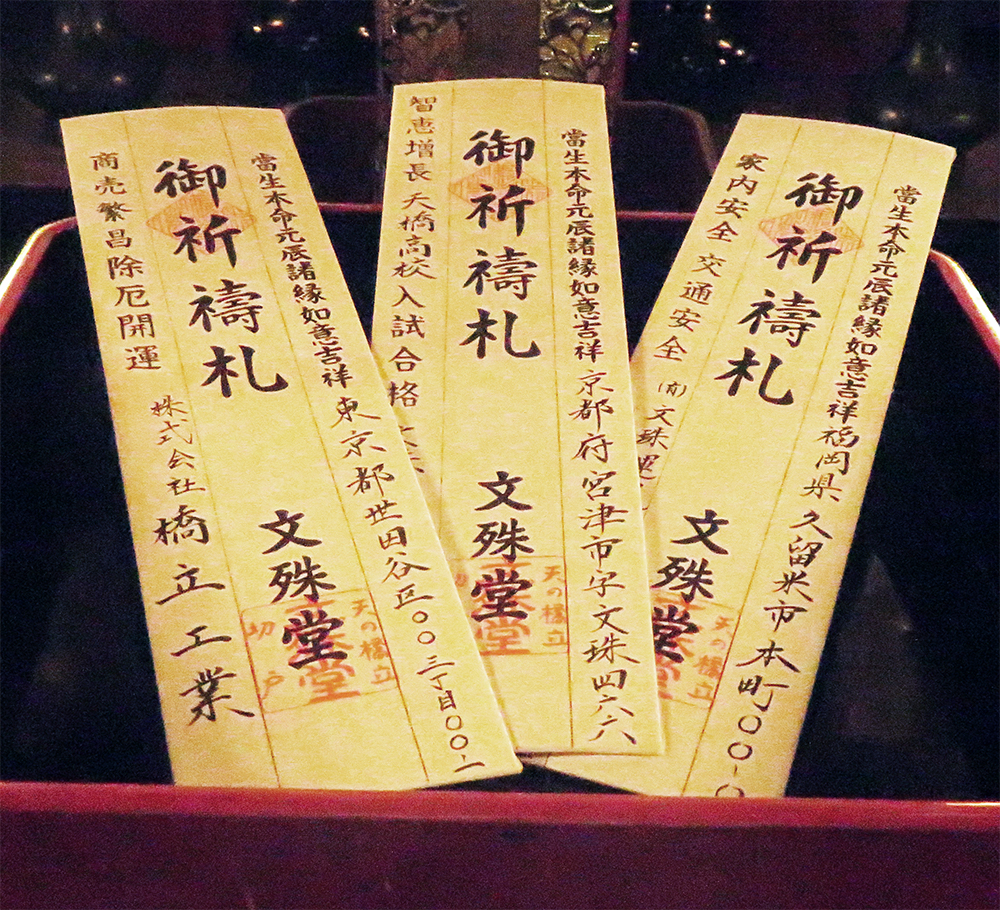 當生本命元辰諸縁如意吉祥 東京都世田谷区〇〇三丁目〇〇-一
御祈禱札 文殊堂
商売繁昌除厄開運 株式会社 橋立工業
天の橋立
切戸
當生本命元辰諸縁如意吉祥 京都府宮津市字文珠四六六
御祈禱札 文殊堂
智恵増長 天橋高校入試合格
天の橋立
當生本命元辰諸縁如意吉祥 福岡県久留米市本町〇〇-〇
御祈禱札 文殊堂
家内安全 交通安全 (有)文珠運
天の橋立